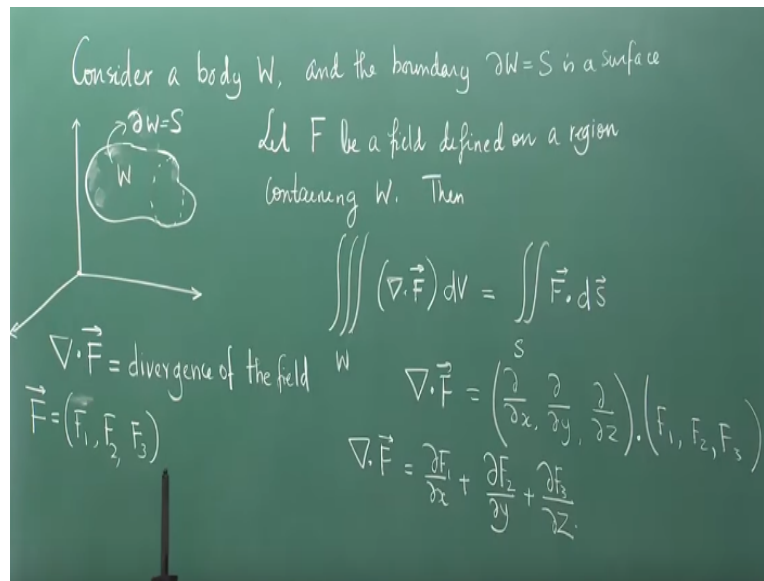 Consider a body W, and the boundary ∂W=S is a surface
∂W=S
W
Let F be a field defined on a region
containing W. Then
∭_W (∇·F⃗) dV = ∬_S F⃗·ds⃗
∇·F⃗ = divergence of the field
F⃗=(F₁, F₂, F₃)
∇·F⃗ = (∂/∂x, ∂/∂y, ∂/∂z)·(F₁, F₂, F₃)
∇·F⃗ = ∂F₁/∂x + ∂F₂/∂y + ∂F₃/∂z.